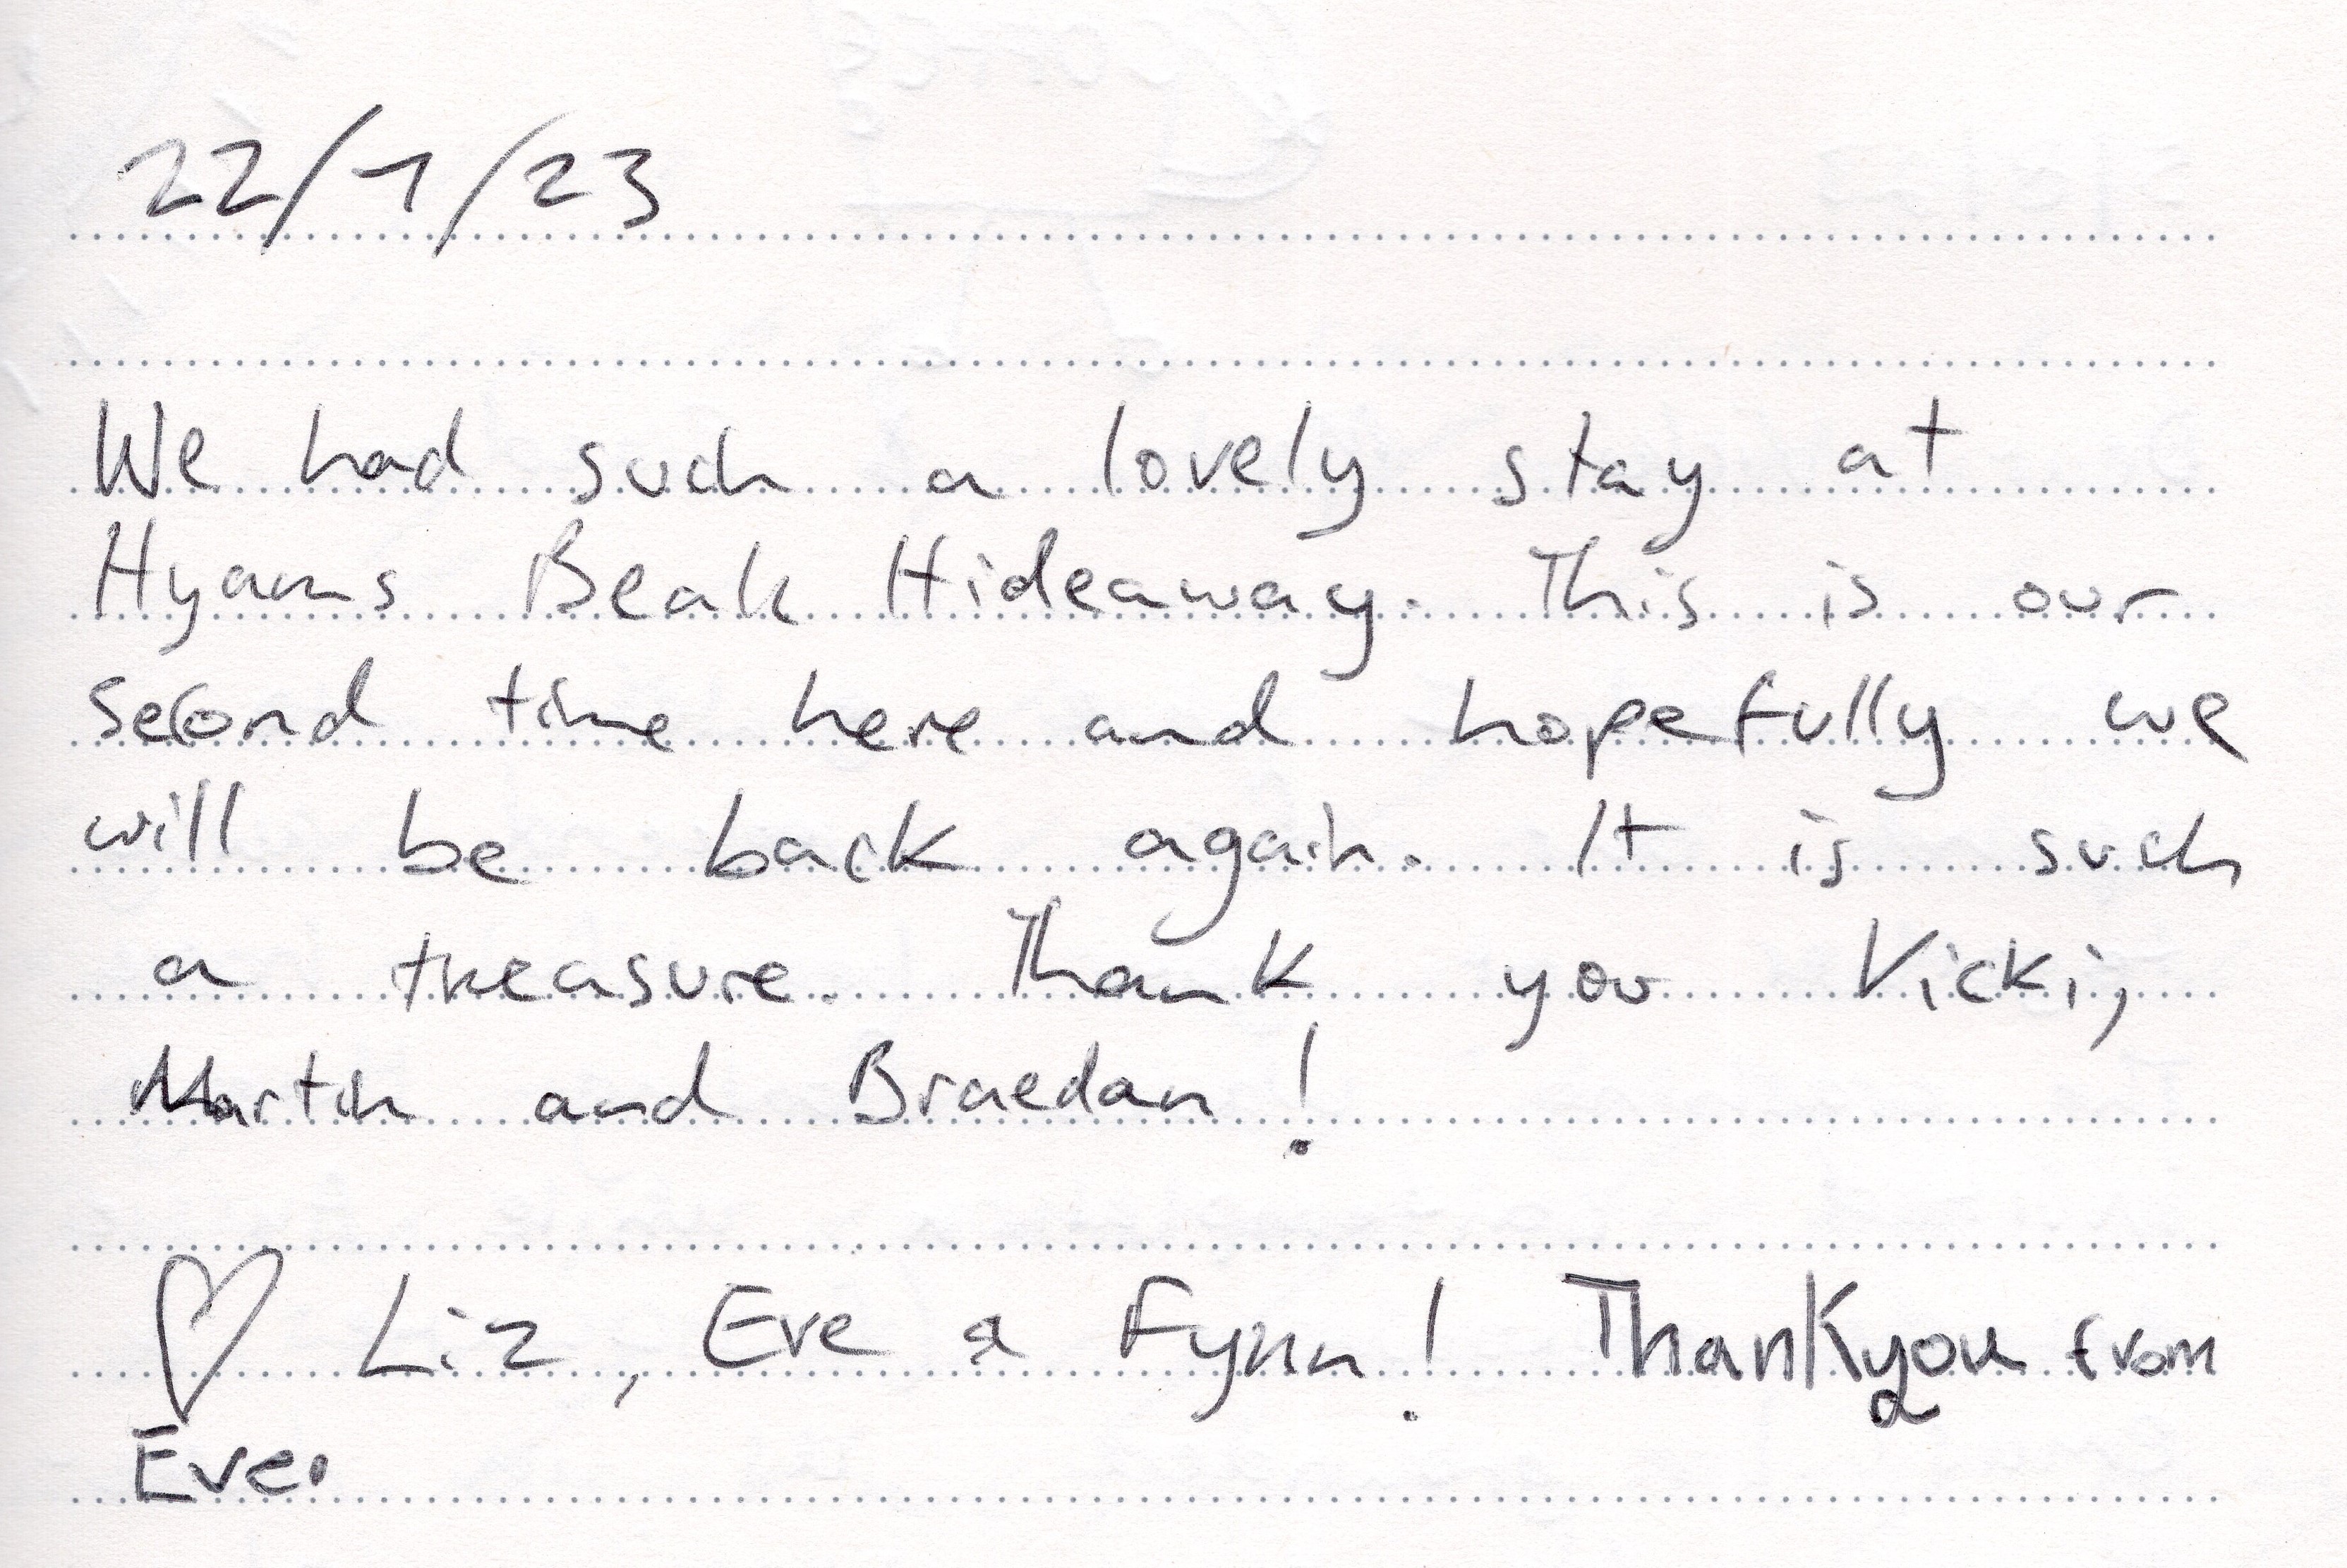 22/1/23
We had such a lovely stay at
Hyams Beah Hideaway. This is our
second time here and hopefully we
will be back again. It is such
a treasure. Thank you Vicki,
Martin and Braedan!
♡ Liz, Eve & Fynn! Thankyou from
Eve.